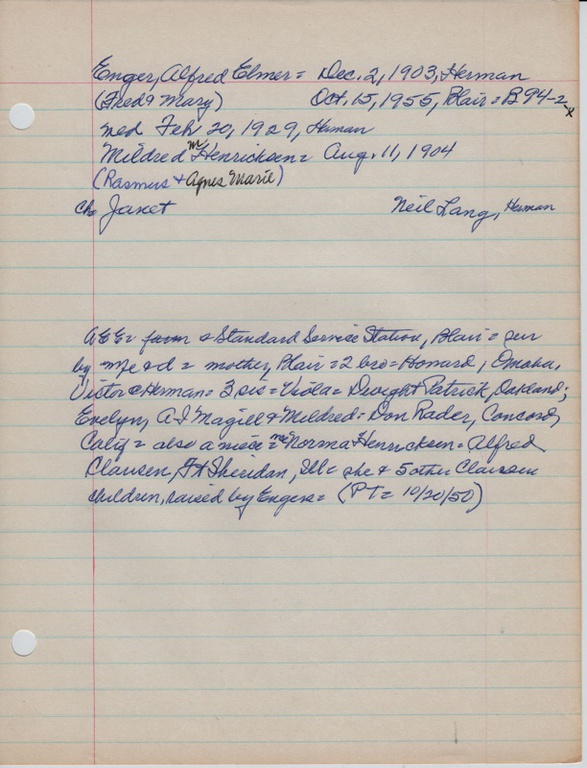 Enger, Alfred Elmer = Dec. 2, 1903, Herman
(Fred & Mary) Oct. 15, 1955, Blair = B 94-2
med Feb 20, 1929, Herman
Mildred M Henricksen = Aug. 11, 1904
(Rasmus + Agnes Marie)
Ch. Janet Neil Lang, Herman
AEE = farm & Standard Service Station, Blair = sur
by wfe & d = mother, Blair = 2 bro = Howard, Omaha,
Victor @ Herman = 3 sis = Viola = Dwight Patrick, Oakland;
Evelyn, A I Magill & Mildred = Don Rader, Concord,
Calif = also a niece = Norma Henricksen = Alfred
Clausen, Ft Sheridan, Ill = she & 5 other Clausen
children, raised by Engers = (PT = 10/20/50)